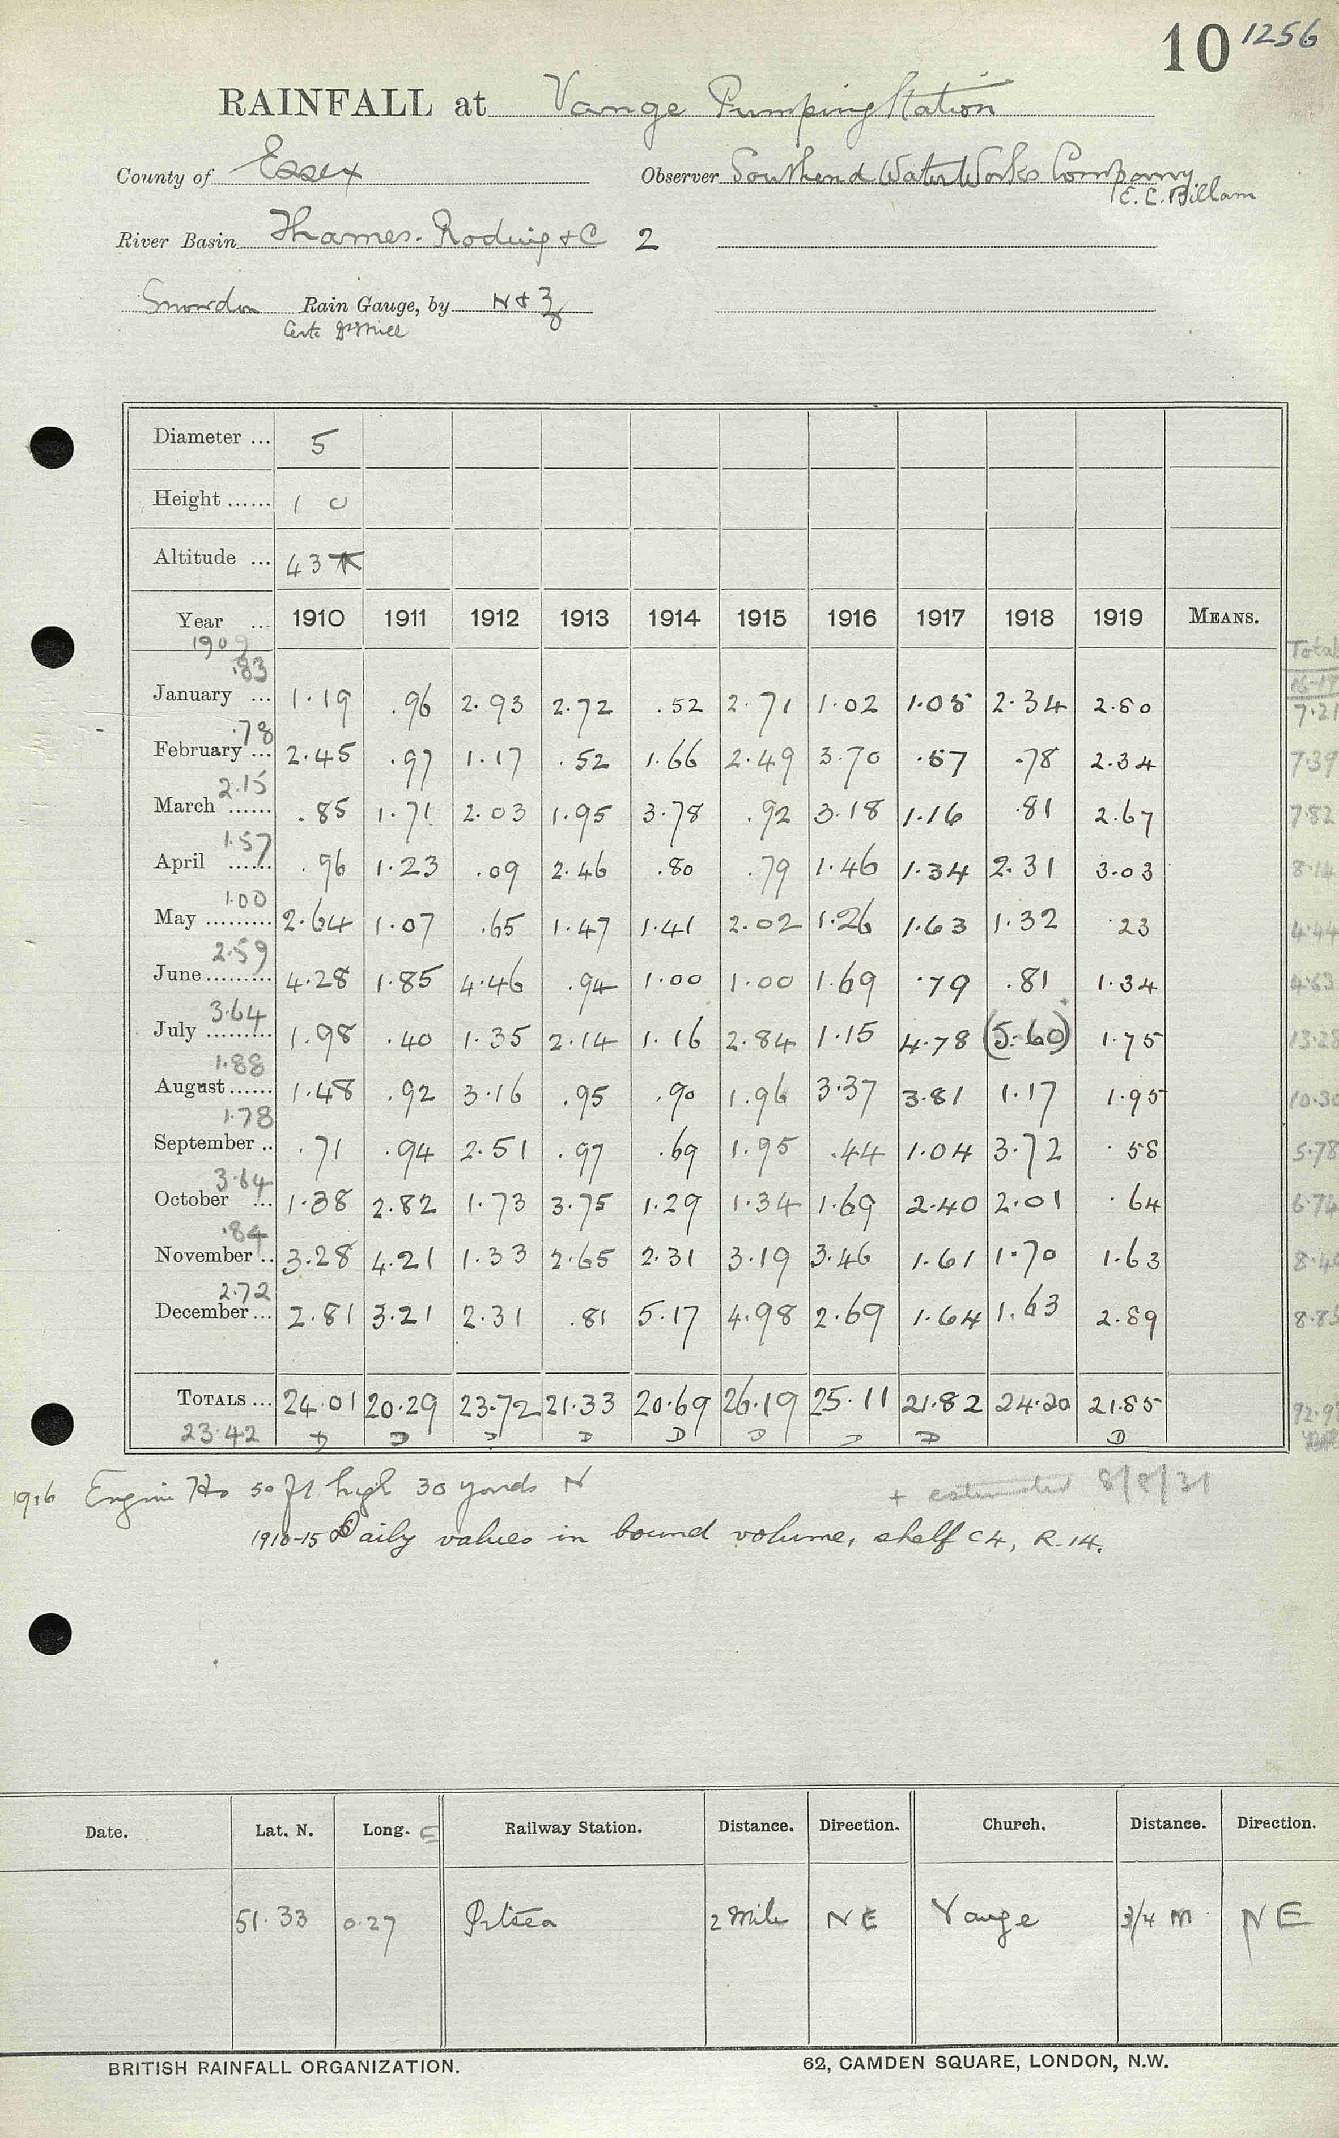 10 1256
RAINFALL at Vange Pumping Station
County of Essex Observer Southend Water Works Company
E. C. Billam
River Basin Thames. Roding & C 2
Snowdon Rain Gauge, by N & Z
Diameter ... 5
Height ...... 1 0
Altitude ... 43
Year ... 1910 1911 1912 1913 1914 1915 1916 1917 1918 1919 MEANS.
1909 Total
.83 16-19
January ... 1.19 .96 2.93 2.72 .52 2.71 1.02 1.05 2.34 2.80 7.21
.78
February ... 2.45 .97 1.17 .52 1.66 2.49 3.70 .57 .78 2.34 7.39
2.15
March ...... .85 1.71 2.03 1.95 3.78 .92 3.18 1.16 .81 2.67 7.82
1.57
April ...... .96 1.23 .09 2.46 .80 .79 1.46 1.34 2.31 3.03 8.14
1.00
May ......... 2.64 1.07 .65 1.47 1.41 2.02 1.26 1.63 1.32 23 4.44
2.59
June ......... 4.28 1.85 4.46 .94 1.00 1.00 1.69 .79 .81 1.34 4.63
3.64
July ......... 1.98 .40 1.35 2.14 1.16 2.84 1.15 4.78 (5.60) 1.75 13.28
1.88
August ...... 1.48 .92 3.16 .95 .90 1.96 3.37 3.81 1.17 1.95 10.30
1.78
September .. .71 .94 2.51 .97 .69 1.95 .44 1.04 3.72 .58 5.78
3.64
October ... 1.38 2.82 1.73 3.75 1.29 1.34 1.69 2.40 2.01 .64 6.74
.84
November .. 3.28 4.21 1.33 2.65 2.31 3.19 3.46 1.61 1.70 1.63 8.40
2.72
December ... 2.81 3.21 2.31 .81 5.17 4.98 2.69 1.64 1.63 2.89 8.85
TOTALS ... 24.01 20.29 23.72 21.33 20.69 26.19 25.11 21.82 24.20 21.85 92.98
23.42 D D D D D D D D D
1916 Engine Ho 50 ft high 30 yards N + estimated 8/8/31
1910-15 Daily values in bound volume, shelf C4, R.14.
Date. Lat. N. Long. E Railway Station. Distance. Direction. Church. Distance. Direction.
51.33 0.27 Pitsea 2 Mile NE Vange 3/4 m NE
BRITISH RAINFALL ORGANIZATION. 62, CAMDEN SQUARE, LONDON, N.W.